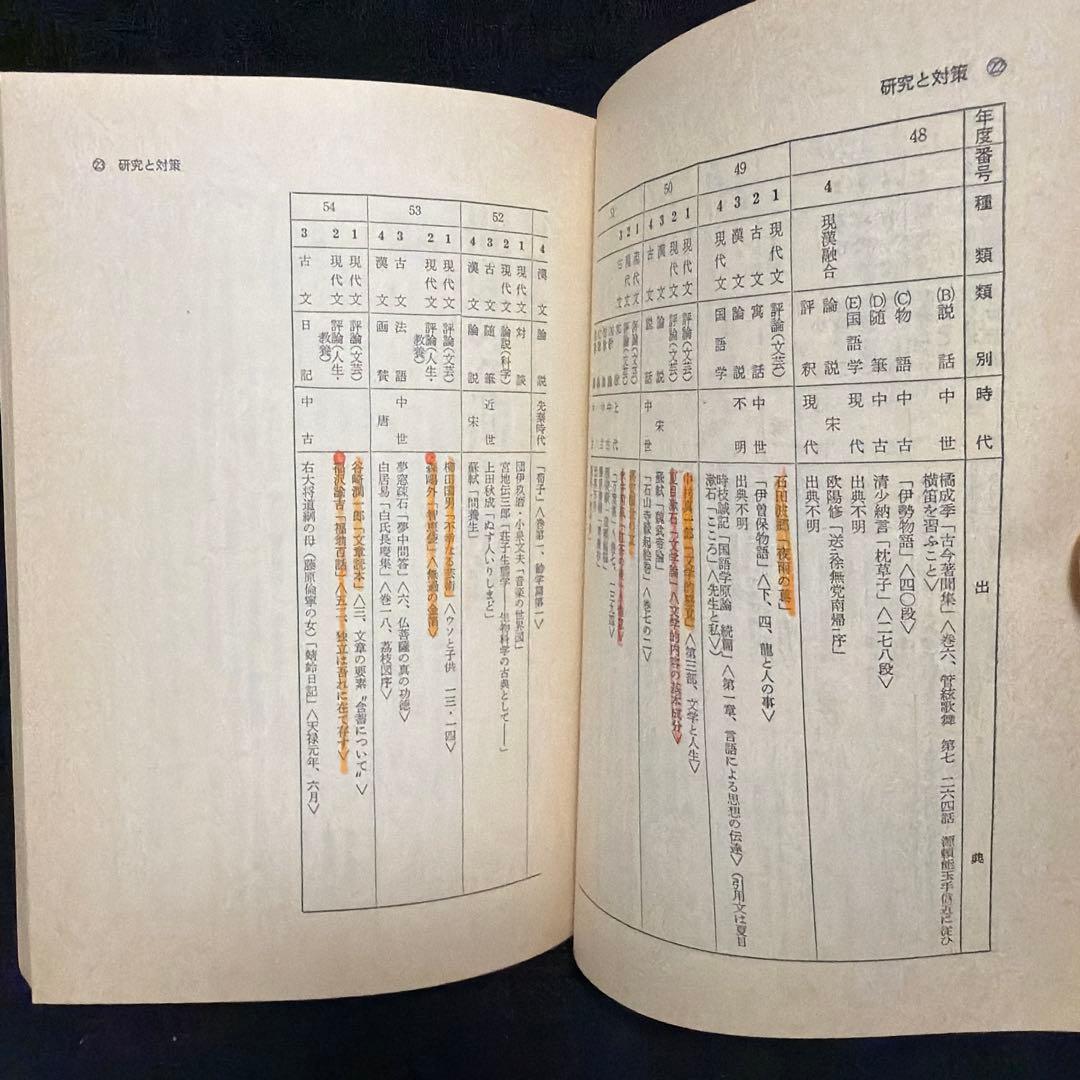 研究と対策 ㉒
年度 番号 種類 類別 時代 出典
48
(B)説話 中世 橘成季「古今著聞集」〈巻六、管絃歌舞 第七 二六四話 源頼能玉手信近に従ひ
横笛を習ふこと〉
(C)物語 中古 「伊勢物語」〈四〇段〉
(D)随筆 中古 清少納言「枕草子」〈二七八段〉
(E)国語学 現代 出典不明
4 現漢融合 論説 宋代 欧陽修「送徐無党南帰序」
評釈 現代 出典不明
49
1 現代文 評論(文芸) 石田 「夜雨の
2 古文 寓話 中世 「伊曽保物語」〈下、四、龍と人の事〉
3 漢文 論説 不明 出典不明
4 現代文 国語学 時枝誠記「国語学原論 続篇」〈第一章、言語による思想の伝達〉(引用文は夏目
漱石「こころ」〈先生と私〉)
50
1 現代文 評論(文芸) 中村真一郎「文学的 〈第三部、文学と人生〉
2 現代文 評論(文芸) 夏目漱石「文学論」〈文学的内容の基本成分〉
3 漢文 論説 宋 蘇軾「魏武帝論」
4 古文 説話 中世 「石山寺縁起絵巻」〈巻七の二〉
1
2
3
㉓ 研究と対策
4 漢文 論説 先秦時代 「荀子」〈巻第一、勧学篇第一〉
52
1 現代文 対談 団伊玖磨・小泉文夫「音楽の世界図」
2 現代文 論説(科学) 宮地伝三郎「荘子生態学 生物科学の古典として――」
3 古文 随筆 近世 上田秋成「ぬす人いりしまど」
4 漢文 論説 宋 蘇軾「問養生」
53
1 現代文 評論(文芸) 柳田国男「不幸なる芸術」〈ウソと子供 一三・一四〉
2 現代文 評論(人生・教養) 森鷗外「智恵袋」〈無過の金箔〉
3 古文 法語 中世 夢窓疎石「夢中問答」〈六、仏菩薩の真の功徳〉
4 漢文 画賛 中唐 白居易「白氏長慶集」〈巻一八、荔枝図序〉
54
1 現代文 評論(文芸) 谷崎潤一郎「文章読本」〈三、文章の要素“含蓄について”〉
2 現代文 評論(人生・教養) 福沢諭吉「福翁百話」〈五二、独立は吾れに在て存す〉
3 古文 日記 中古 右大将道綱の母(藤原倫寧の女)「蜻蛉日記」〈天禄元年、六月〉